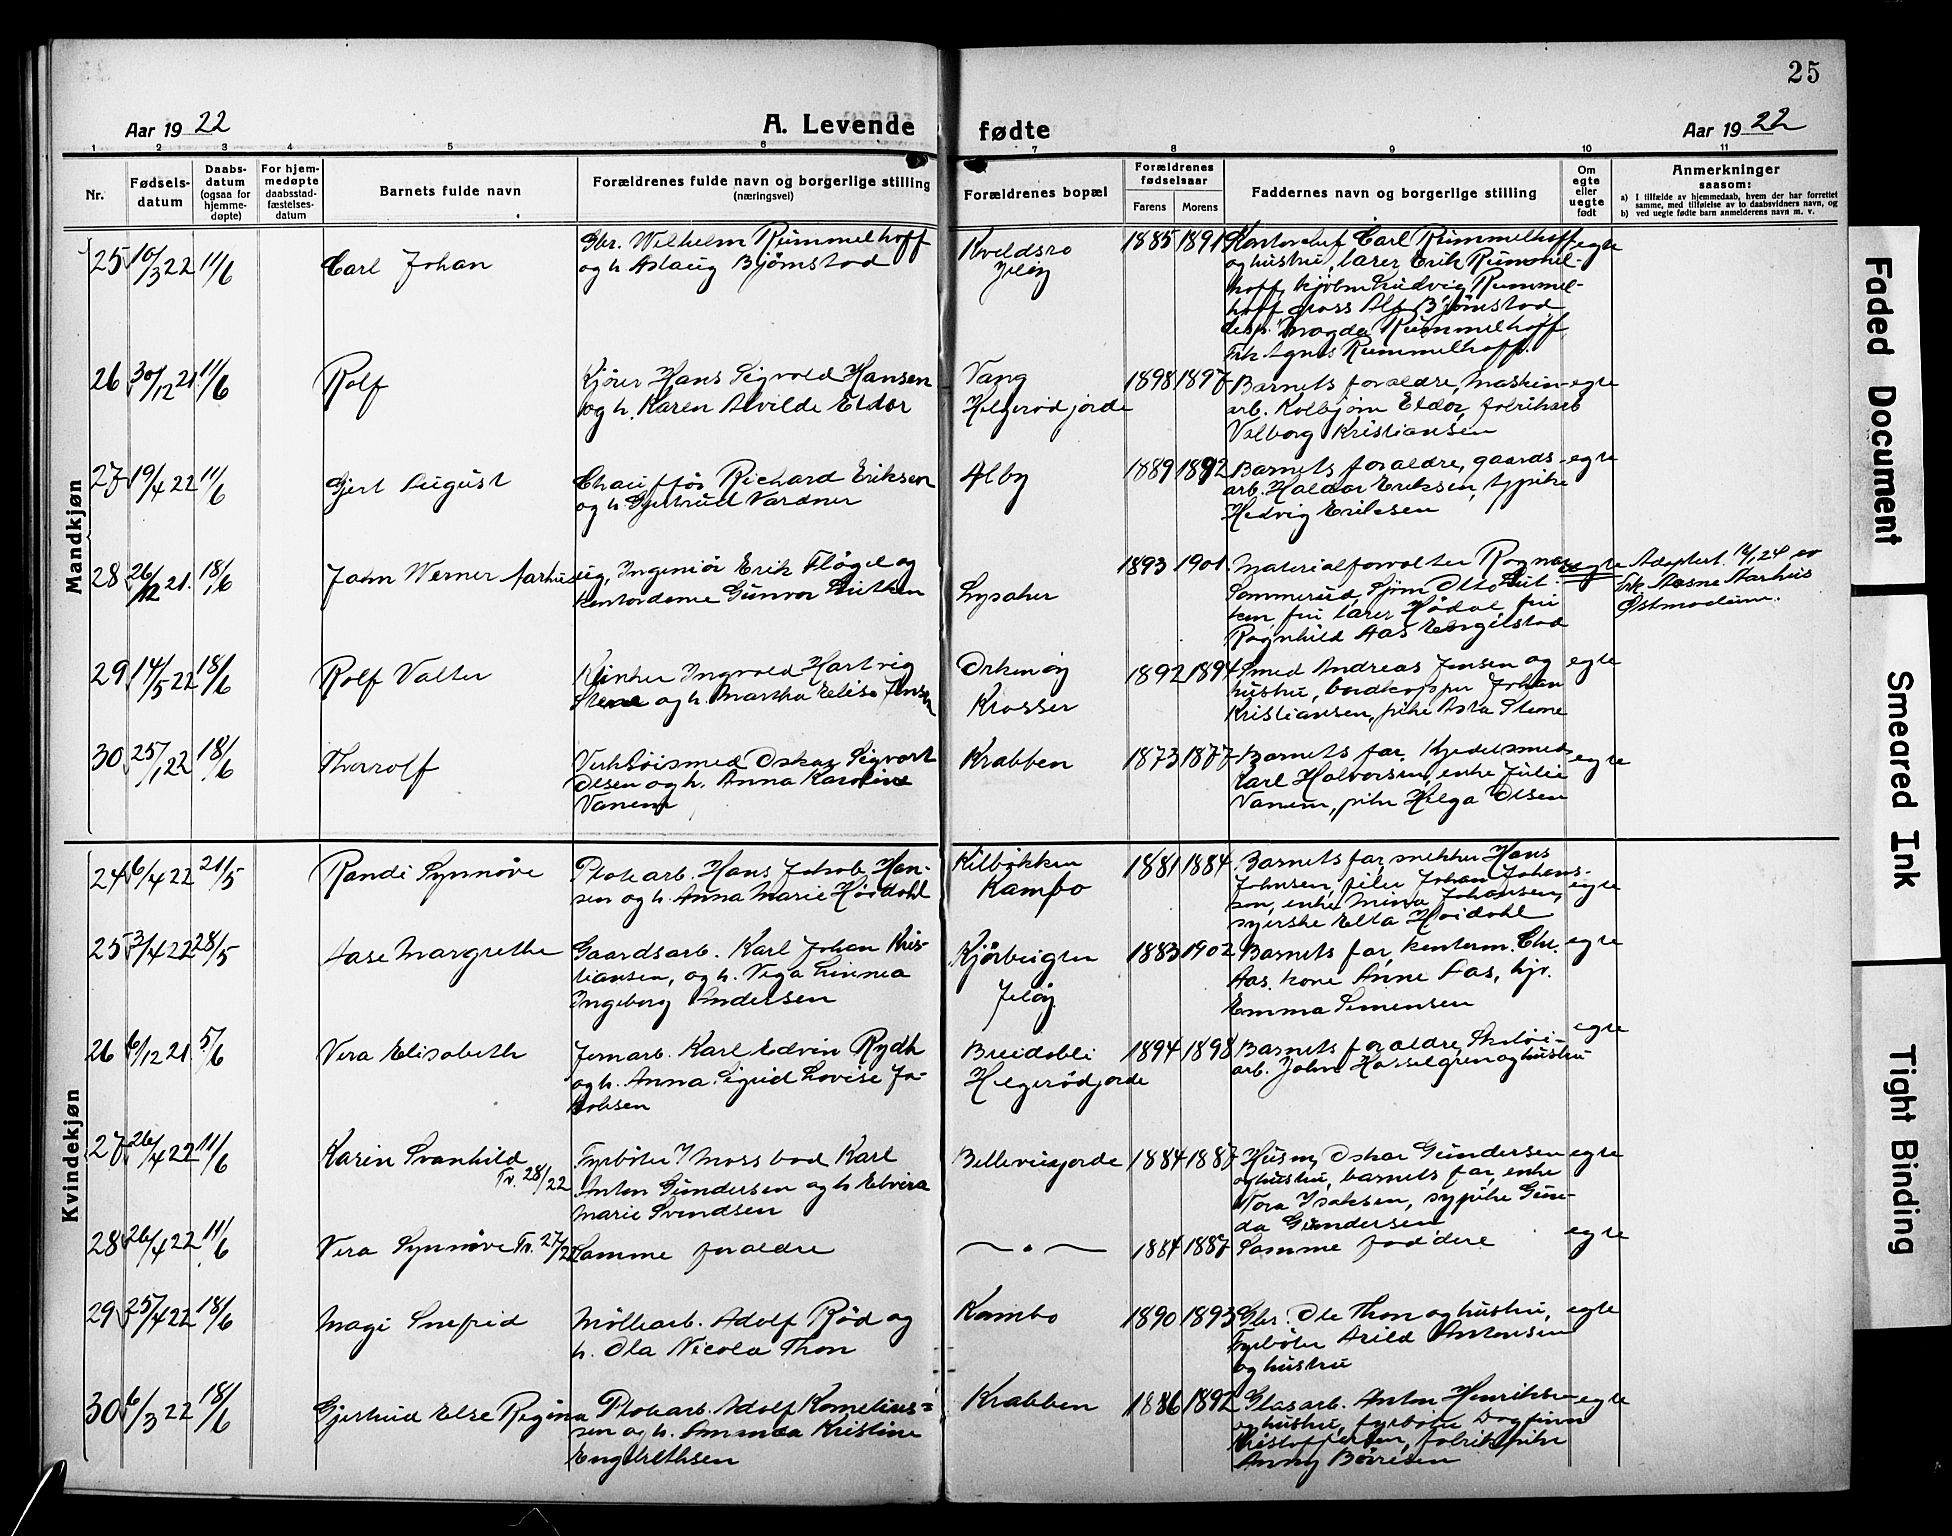 25
Aar 1922 A. Levende fødte Aar 1922
1 2 3 4 5 6 7 8 9 10 11
Nr.
Fødsels-
datum
Daabs-
datum
(ogsaa for
hjemme-
døpte)
For hjem-
medøpte
daabsstad-
fæstelses-
datum
Barnets fulde navn
Forældrenes fulde navn og borgerlige stilling
(næringsvei)
Forældrenes bopæl
Forældrenes
fødselsaar
Farens Morens
Faddernes navn og borgerlige stilling
Om
egte
eller
uegte
født
Anmerkninger
saasom:
a) I tilfælde av hjemmedaab, hvem der har forrettet
samme, med tilføielse av to daabsvidners navn, og
b) ved uegte fødte barn anmelderens navn m. v.
Mandkjøn
25 10/3 22 11/6 Carl Johan
Gbr. Wilhelm Rummelhoff
og h. Aslaug Bjørnstad
Kveldsro
Jeløy
1885 1891
Kontorchef Carl Rummelhoff
og hustru, lærer Erik Rummel-
hoff, Ludvig Rummel-
hoff, gross Alf Bjørnstad
Magda Rummelhoff,
Frk. Agnes Rummelhoff.
egte
26 30/12 21 11/6 Rolf
Kjører Hans Sigvald Hansen
og h. Karen Alvilde Eldor
Vang
Helgerødjorde
1898 1897
Barnets forældre, maskin-
arb. Kolbjørn Eldor, fabrikarb
Valborg Kristiansen
egte
27 19/4 22 11/6 Gjert August
Chauffør Richard Eriksen
og h. Gjertrud Vardner
Alby
1889 1892
Barnets forældre, gaards-
arb. Haldor Eriksen, sypike
Hedvig Eriksen
egte
28 26/12 21. 18/6 John Werner Aarhus
ug. Ingeniør Erik Fløgel og
Kontordame Gunvor Luithen
Lysaker
1893 1901
Materialforvalter Ragnar
Sommerud, Sjøm Otto Luit-
ken, fru lærer Hødal, fru
Ragnhild Aas Engelstad
uegte
Adoptert 12/1 24 av
Frk. Aasne Aarhus
Østmodum.
29 14/5 22 18/6 Rolf Valter
Ingvald Hartvig
Stene og h. Martha Elise Jensen
Orkenøy
Krosser
1892 1894
Smed Andreas Jensen og
hustru, bordkopper Johan
Kristiansen, pike Asta Stene
egte
30 25/1 22 18/6 Thorrolf
Verktøismed Oskar Sigvart
Olsen og h. Anna Karoline
Vanem
Krabben
1873 1877
Barnets far, Kjedelsmed
Karl Halvorsen, enke Julie
Vanem, pike Helga Olsen
egte
Kvindekjøn
24 6/4 22 21/5 Randi Synnøve
Plokarb. Hans Jakob Han-
sen og h. Anna Marie Høidahl
Kilbakken
Kambo
1881 1884
Barnets far, snekker Hans
Johnsen, Johan Johans-
son, enke Mina Johansen,
syerske Elta Høidahl
egte
25 3/4 22 28/5 Aase Margrethe
Gaardsarb. Karl Johan Kris-
tiansen, og h. Vega Linnea
Ingeborg Andersen
Kjørbuigen
Jeløy
1883 1902
Barnets far, Chr.
Aas, kone Anne Aas,
Emma Simensen
egte
26 6/12 21. 5/6 Vera Elisabeth
Jernarb. Karl Edvin Rydh
og h. Anna Sigrid Lovise Ja-
kobsen
Breidabli
Helgerødjorde
1894 1898
Barnets forældre, Skotøi-
arb. John Hasselgren og hustru
egte
27 26/4 22 11/6 Karin Svanhild
Tv. 28/22
Fyrbøter I Moss bad Karl
Anton Gundersen og h Elvira
Marie Svendsen
Bellevuejorde
1884 1887
Husm. Oskar Gundersen
og hustru, barnets far, enke
Tora Isaksen, sypike Gun-
da Gundersen
egte
28 26/4 22 11/6 Vera Synnøve Tv. 27/22
Samme forældre
— " —
1884 1887
Samme faddere
egte
29 25/4 22 18/6 Magi Snefrid
Møllearb. Adolf Rød og
h. Ola Nicola Thon
Kambo
1890 1893
Gbr. Ole Thon og hustru,
Fyrbøter Arild Antonsen
og hustru
egte
30 6/3 22 18/6 Gjertrud Else Regina
Plokarb. Adolf Kornelius-
sen og h. Amanda Kristine
Engebrethsen
Krabben
1886 1892
Glasarb. Anton Henriksen
og hustru, fyrbøter Dagfinn
Kristoffersen, fabrikpike
Anny Børresen
egte
Faded Document
Smeared Ink
Tight Binding